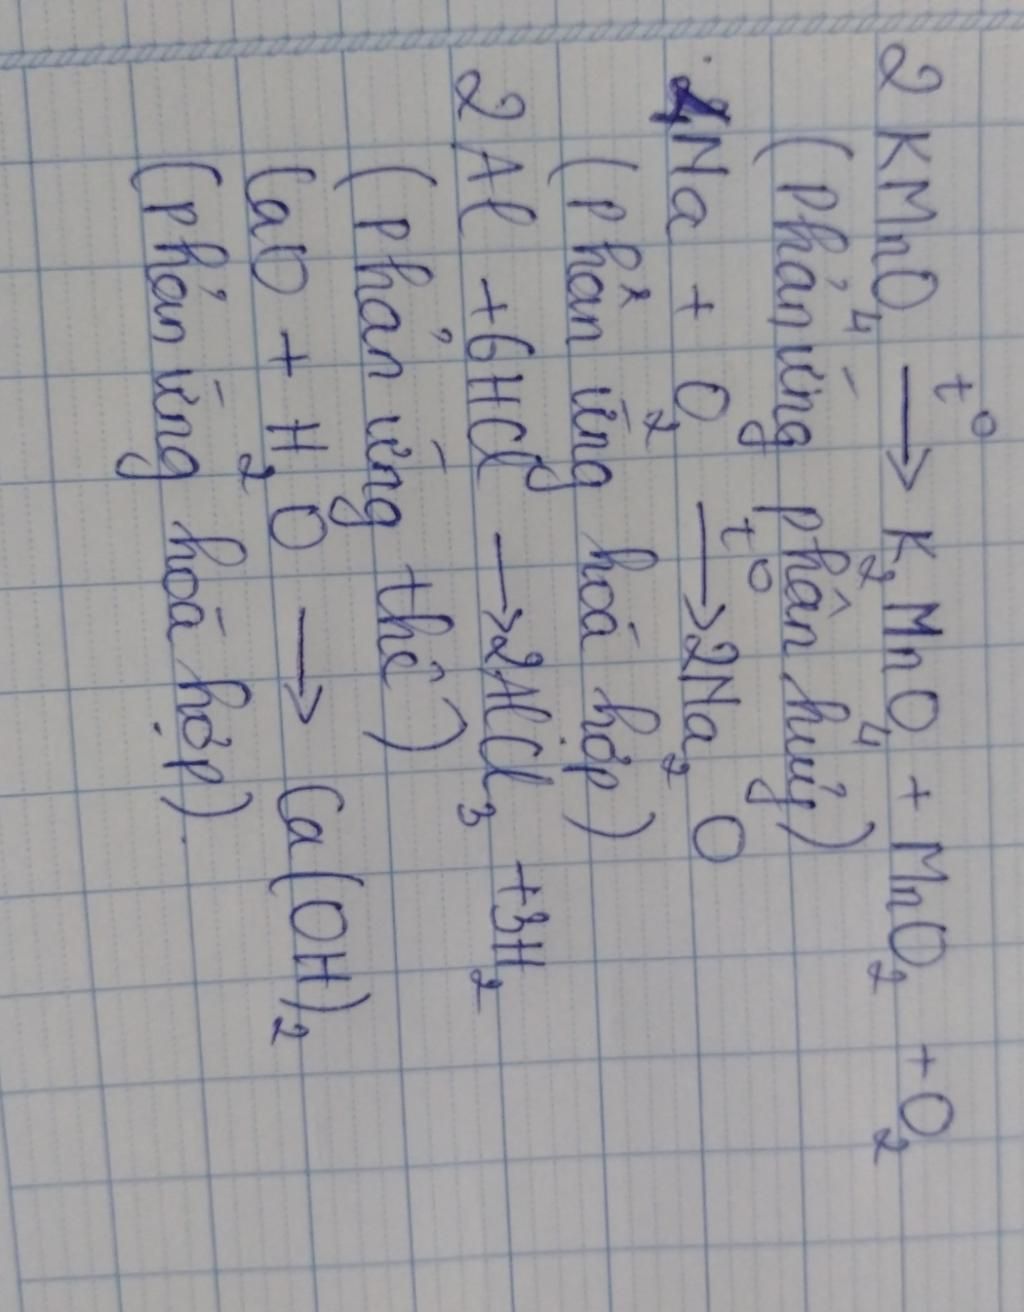 2 KMnO₄ →t⁰ K₂MnO₄ + MnO₂ + O₂
(Phản ứng phân huỷ)
4Na + O₂ →t⁰ 2Na₂O
(phản ứng hoá hợp)
2Al + 6HCl → 2AlCl₃ + 3H₂
(phản ứng thế)
CaO + H₂O → Ca(OH)₂
(phản ứng hoá hợp).